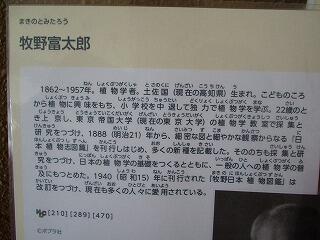 まきのとみたろう
牧野富太郎
1862~1957年。植物学者。土佐国(現在の高知県)生まれ。こどものころ
から植物に興味をもち、小学校を中退して独力で植物学を学ぶ。22歳のと
き上京し、東京帝国大学(現在の東京大学)の植物学教室で採集と
研究をつづけ、1888(明治21)年から、細密な図と細やかな観察からなる『日
本植物志図篇』を刊行しはじめ、多くの新種を記載した。そののちも採集と研
究をつづけ、日本の植物学の基礎をつくるとともに、一般の人への植物学の普
及にもつとめた。1940(昭和15)年に刊行された『牧野日本植物図鑑』は
改訂をつづけ、現在も多くの人々に愛用されている。
[210] [289] [470]
©ポプラ社